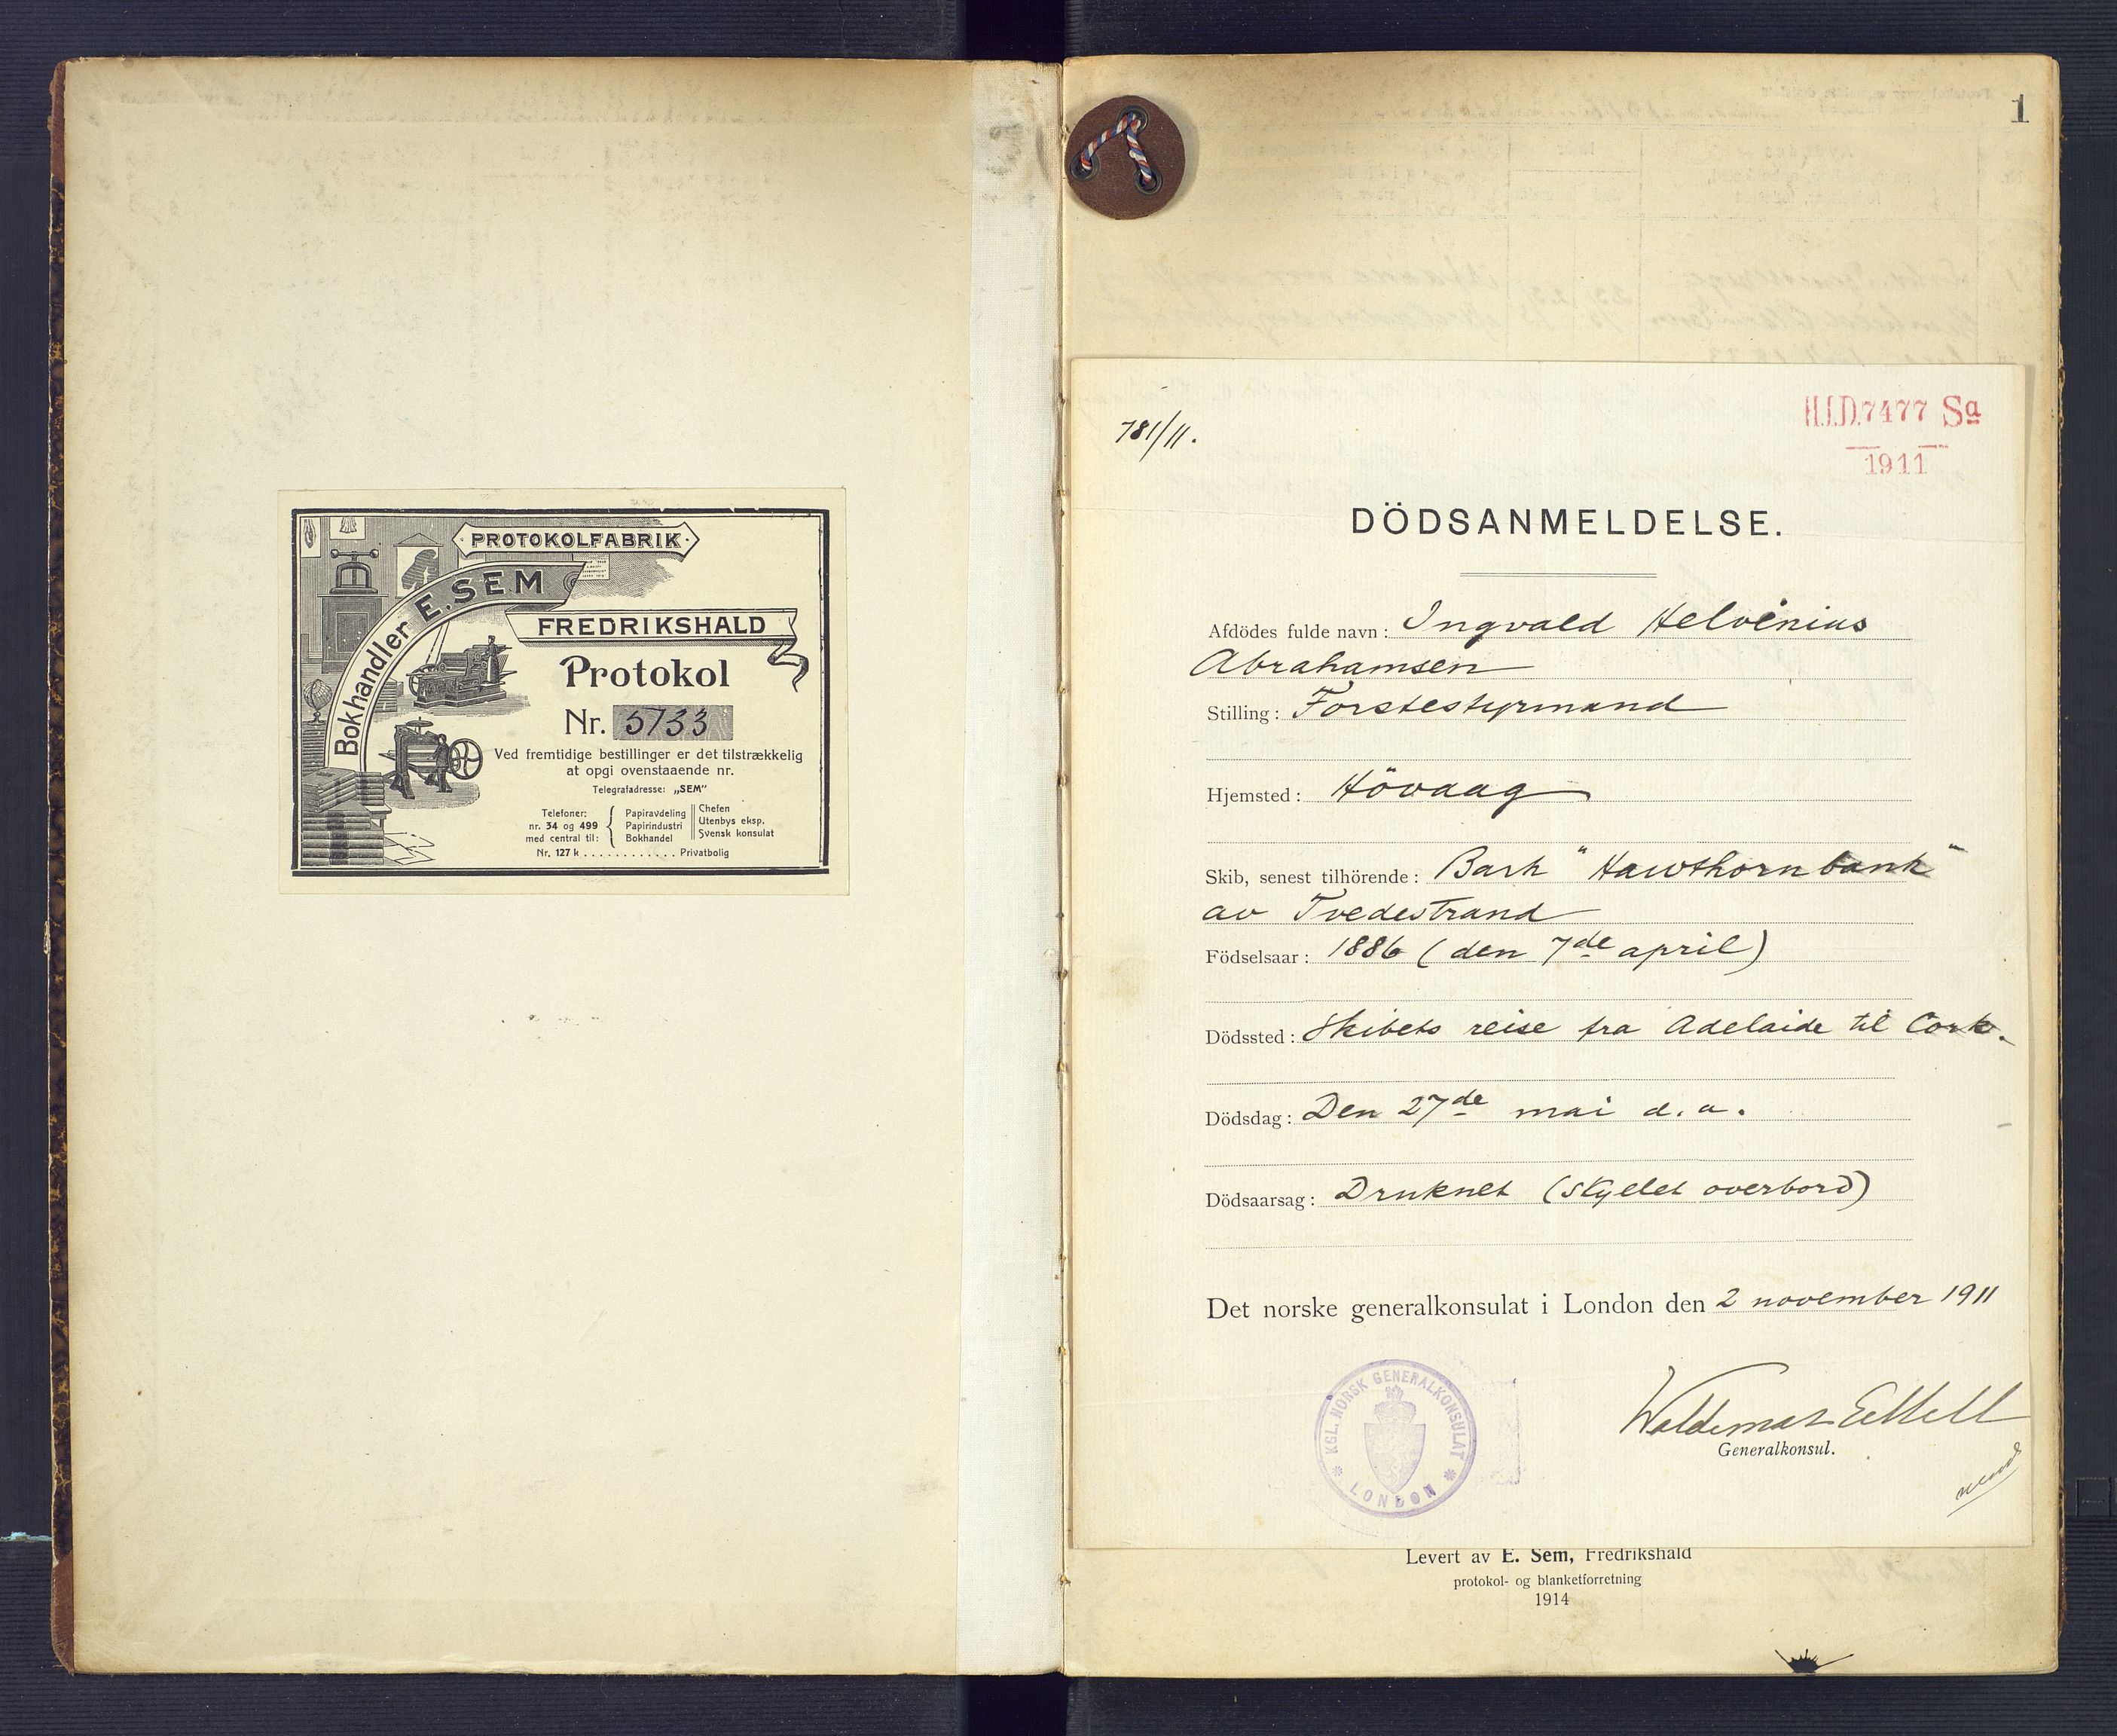 PROTOKOLFABRIK
Bokhandler E. SEM
FREDRIKSHALD
Protokol
Nr. 5733
Ved fremtidige bestillinger er det tilstrækkelig
at opgi ovenstaaende nr.
Telegrafadresse: „SEM"
Telefoner:
nr. 34 og 499
med central til:
Papiravdeling
Papirindustri
Bokhandel
Chefen
Utenbys eksp.
Svensk konsulat
Nr. 127 k . . . . . . . . . . . . Privatbolig
1
781/11.
H.J.D.7477 Sa
1911
DÖDSANMELDELSE.
Afdödes fulde navn: Ingvald Helvenius
Abrahamsen
Stilling: Förstestyrmand
Hjemsted: Hövaag
Skib, senest tilhörende: Bark "Hawthornbank"
av Tvedestrand
Födselsaar: 1886 (den 7de april)
Dödssted: Skibets reise fra Adelaide til Cork.
Dödsdag: Den 27de mai d. a.
Dödsaarsag: Druknet (skyllet overbord)
Det norske generalkonsulat i London den 2 november 1911
KGL. NORSK GENERALKONSULAT
LONDON
Waldemar Eitzell
Generalkonsul.
Levert av E. Sem, Fredrikshald
protokol- og blanketforretning
1914